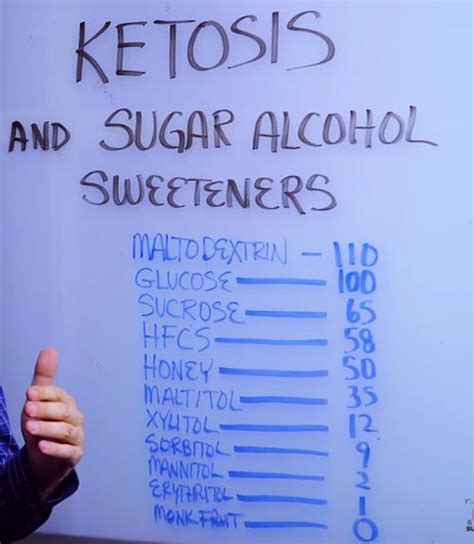 KETOSIS
AND SUGAR ALCOHOL
SWEETENERS
MALTODEXTRIN — 110
GLUCOSE — 100
SUCROSE — 65
HFCS — 58
HONEY — 50
MALTITOL — 35
XYLITOL — 12
SORBITOL — 9
MANNITOL — 2
ERYTHRITOL — 1
MONK FRUIT — 0